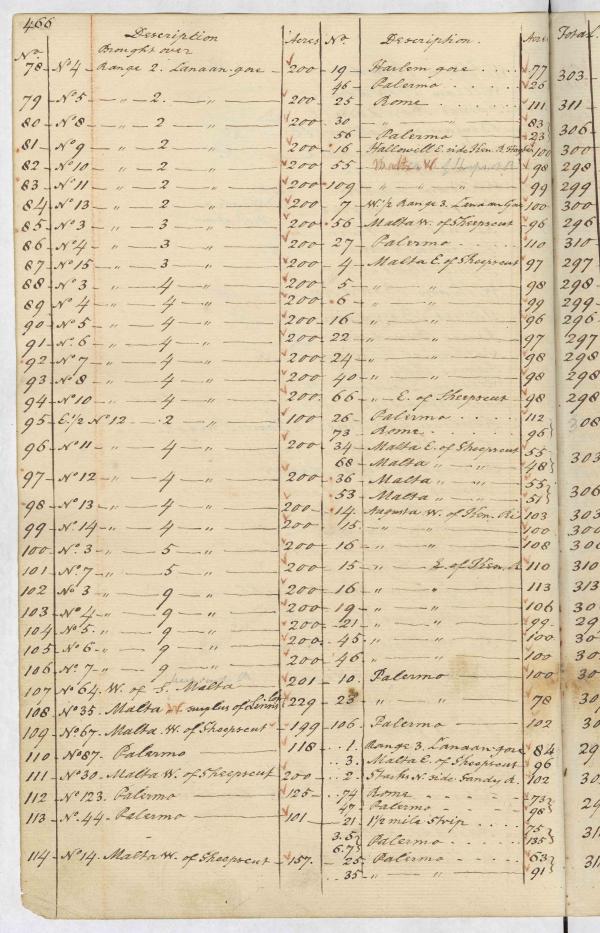 466
Description Acres No. Description. Acres Total.
No.
Brought over
78 - No 4 - Range 2. Canaan gore - 200 - 19 - Harlem gore . . . . 77
46 - Palermo . . . . 26 303
79 - No 5 - " - 2. - " 200 - 25 - Rome. - 111 311 -
80 - No 8 - " - 2 - " 200 - 30 - " " 83
56 - Palermo 23 306 -
81 - No 9 - " - 2 - " 200 - 16 - Hallowell E. side Ken. R. 100 300
82 - No 10 - " - 2 - " 200 - 55 - 98 298
83 - No 11 - " - 2 - " 200 - 109 - " " " 99 299
84 - No 13 - " - 2 - " 200 - 7 - W. 1/2 Range 3. Canaan Gore 100 300
85 - No 3 - " - 3 - " 200 - 56 - Malta W. of Sheepscut - 96 296
86 - No 4 - " - 3 - " 200 - 27 - Palermo . . . . 110 310
87 - No 15 - " - 3 - " 200 - 4 - Malta E. of Sheepscut 97 297
88 - No 3 - " - 4 - " 200 - 5 - " " 98 298 -
89 - No 4 - " - 4 - " 200 - 6 - " " 99 299 -
90 - No 5 - " - 4 - " 200 - 16 - " " 96 296
91 - No. 6 - " - 4 - " 200 - 22 - " " 97 297
92 - No 7 - " - 4 - " 200 - 24 - " " 98 298
93 - No 8 - " - 4 - " 200 - 40 - " " 98 298
94 - No 10 - " - 4 - " 200 - 66 - " - E. of Sheepscut - 98 298
95 - E. 1/2 No 12 - 2 - " 100 - 26 - Palermo . . . . 112
73 - Rome. . . . . 96 308
96 - No 11 - " - 4 - " 200 - 34 - Malta E. of Sheepscut 55
68 - Malta " " 48 303
97 - No 12 - " - 4 - " 200 - 36 - Malta " " 55
53 - Malta " " 51 306
98 - No 13 - " - 4 - " 200 - 14. Augusta W. of Ken. Ri 103 303
99 - No 14 - " - 4 - " 200 - 15 - " " 100 300
100 - No. 3 - " - 5 - " 200 - 16 - " " 108
101 - No 7 - " - 5 - " 200 - 15 - " E. of Ken. R 110 310
102 - No 3 - " - 9 - " 200 - 16 - " " 113 313
103 - No 4 - " - 9 - " 200 - 19 - " " 106 30
104 - No 5. " - 9 - " 200 - 21 - " " 99 - 29
105 - No 6 - " - 9 - " 200 - 45 - " " 100 30
106 - No 7 - " - 9 - " 200 - 46 - " " 100 30
107 - No 64. W. of S. Malta - 201 - 10. Palermo 100 30
108 - No 35. Malta surplus of 229 - 23 - " " 78 30
109 - No 67. Malta W. of Sheepscut - 199 - 106 - Palermo 102 30
110 - No 87. Palermo 118 - 1. Range 3. Canaan gore 84 29
3. Malta E. of Sheepscut 96
111 - No 30. Malta W. of Sheepscut 200 - 2. Starks N. side Sandy R. 102 30
112 - No 123. Palermo 125 - 74 Rome 73
47 - Palermo 98 29
113 - No. 44. Palermo 101 - 21. 1 1/2 mile Strip . . . . 75
3.5
6.7 Palermo 135 31
114 - No 14. Malta W. of Sheepscut - 157. 25 - Palermo 63
35 - " " 91 31